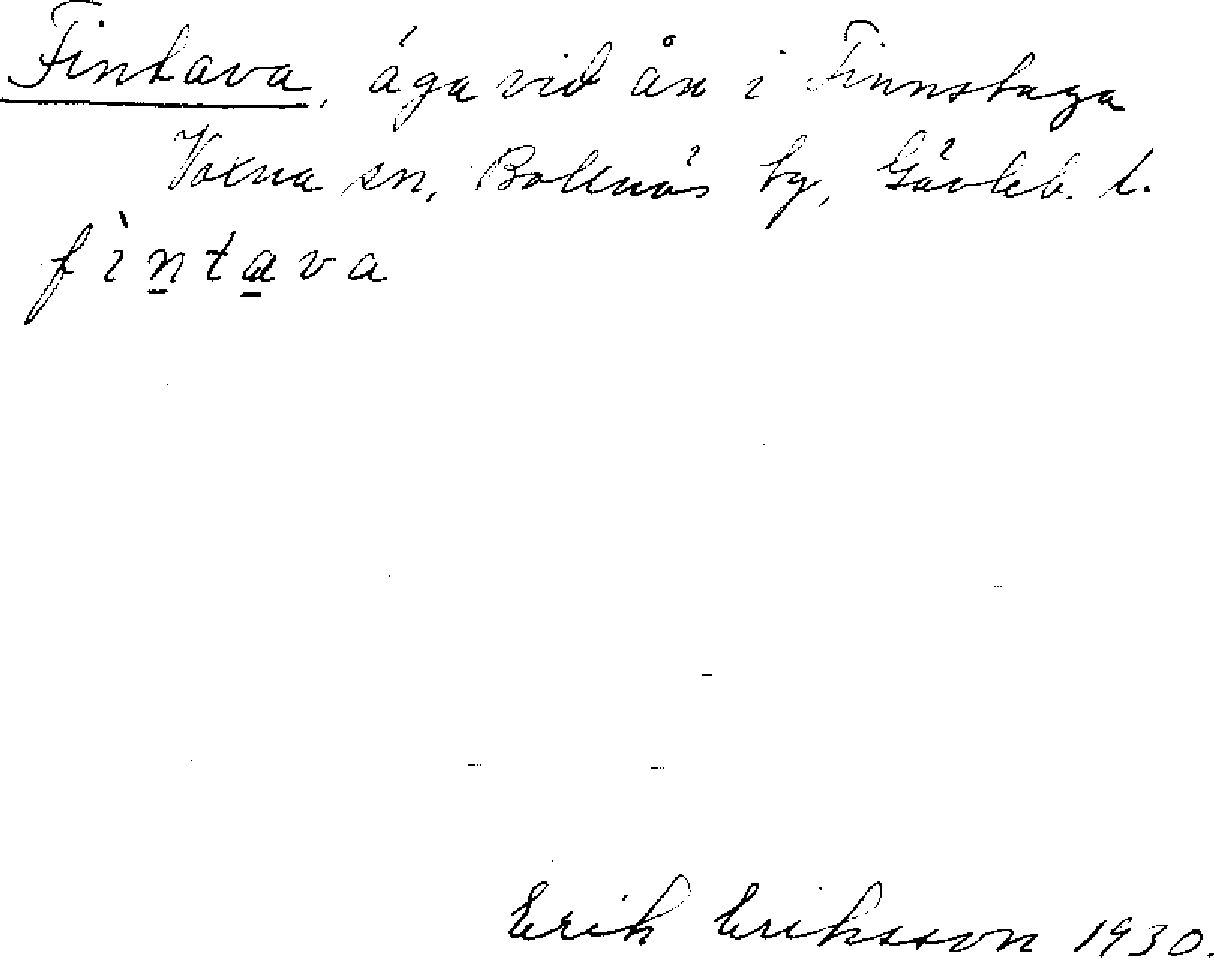 Fintava, äga vid ån i Finnstuga
Voxna sn, Bollnäs by, Gävleb. l.
fìntava
Erik Eriksson 1930.